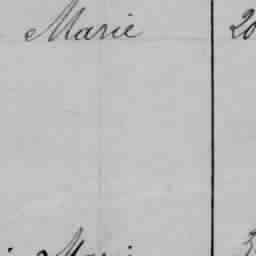 Marie 20
Marie 3